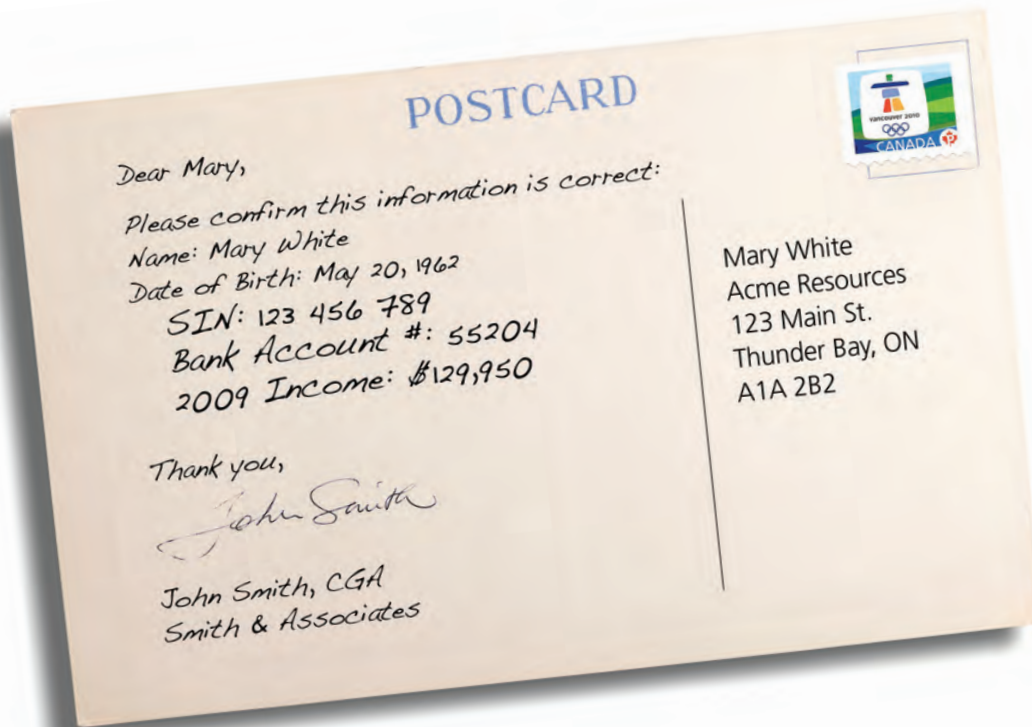 POSTCARD
vancouver 2010
CANADA P
Dear Mary,
Please confirm this information is correct:
Name: Mary White
Date of Birth: May 20, 1962
SIN: 123 456 789
Bank Account #: 55204
2009 Income: $129,950
Thank you,
John Smith
John Smith, CGA
Smith & Associates
Mary White
Acme Resources
123 Main St.
Thunder Bay, ON
A1A 2B2